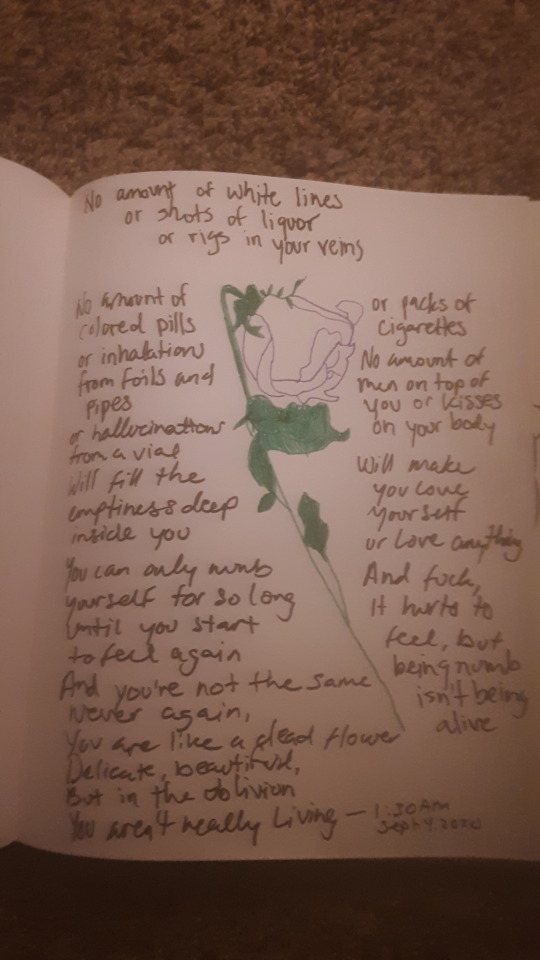 No amount of white lines
or shots of liquor
or rigs in your veins
No amount of
colored pills
or inhalations
from foils and
pipes
or hallucinations
from a vial
Will fill the
emptiness deep
inside you
You can only numb
yourself for so long
Until you start
to feel again
And you're not the same
Never again,
You are like a dead flower
Delicate, beautiful,
But in the oblivion
You aren't really Living —
or packs of
cigarettes
No amount of
men on top of
you or kisses
on your body
Will make
you Love
yourself
or Love anything
And fuck,
It hurts to
feel, but
being numb
isn't being
alive
1:30AM
Sept 4. 2020